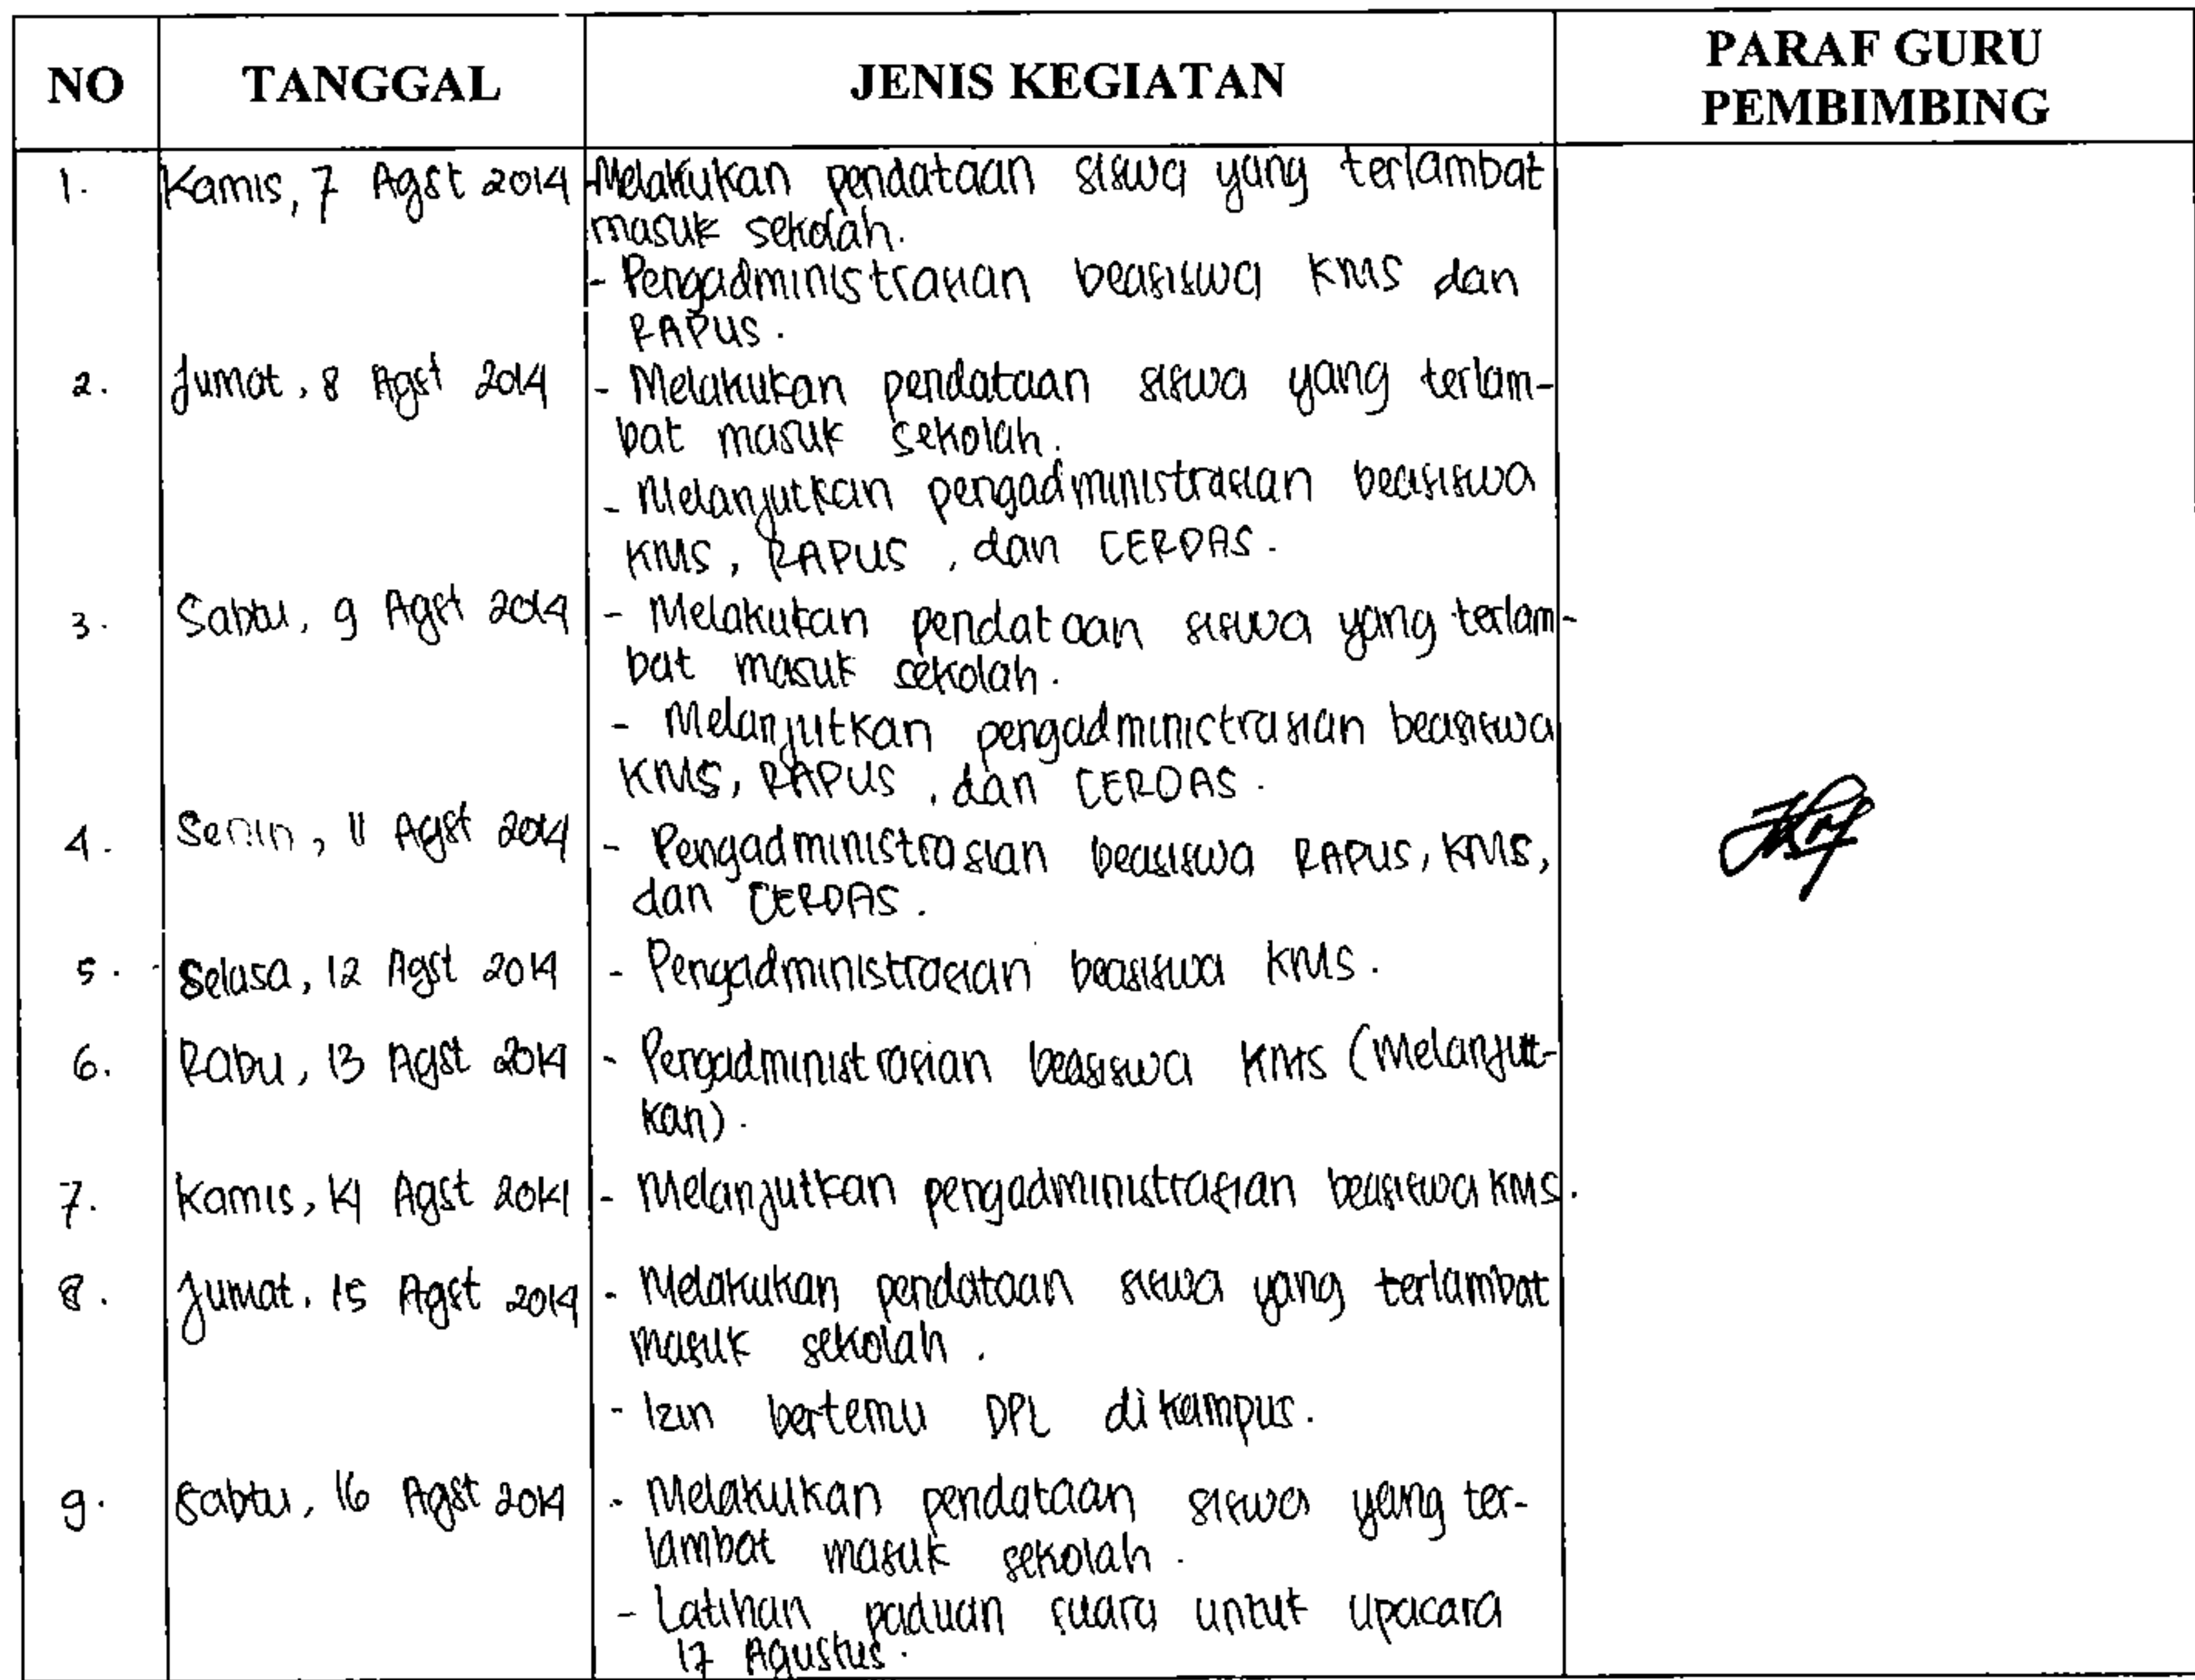 NO TANGGAL JENIS KEGIATAN PARAF GURU PEMBIMBING
1. Kamis, 7 Agst 2014 -Melakukan pendataan siswa yang terlambat
masuk sekolah.
- Pengadministrasian beasiswa KMS dan
RAPUS.
2. Jumat, 8 Agst 2014 - Melakukan pendataan siswa yang terlam-
bat masuk sekolah.
- Melanjutkan pengadministrasian beasiswa
KMS, RAPUS, dan CERDAS.
3. Sabtu, 9 Agst 2014 - Melakukan pendataan siswa yang terlam-
bat masuk sekolah.
- Melanjutkan pengadministrasian beasiswa
KMS, RAPUS, dan CERDAS.
4. Senin, 11 Agst 2014 - Pengadministrasian beasiswa RAPUS, KMS,
dan CERDAS.
5. Selasa, 12 Agst 2014 - Pengadministrasian beasiswa KMS.
6. Rabu, 13 Agst 2014 - Pengadministrasian beasiswa KMS (Melanjut-
kan).
7. Kamis, 14 Agst 2014 - Melanjutkan pengadministrasian beasiswa KMS.
8. Jumat, 15 Agst 2014 - Melakukan pendataan siswa yang terlambat
masuk sekolah.
- Izin bertemu DPL dikampus.
9. Sabtu, 16 Agst 2014 - Melakukan pendataan siswa yang ter-
lambat masuk sekolah.
- Latihan paduan suara untuk upacara
17 Agustus.